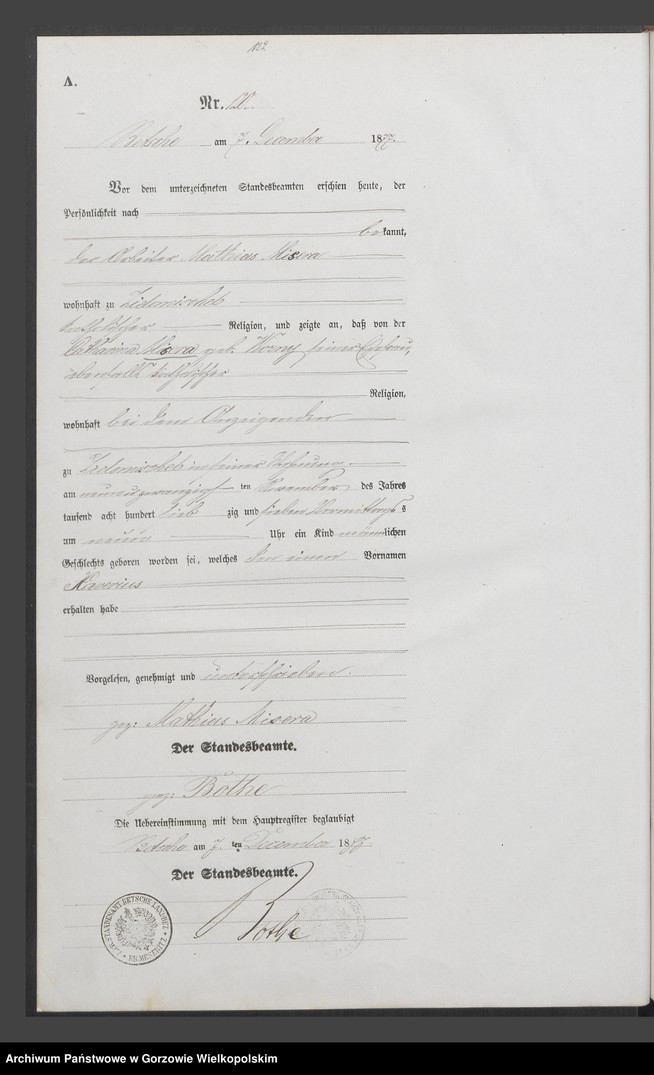 A.
Nr.
Betsche am 7. December 1877.
Vor dem unterzeichneten Standesbeamten erschien heute, der
Persönlichkeit nach
bekannt,
der Arbeiter Mathias Misera
wohnhaft zu
katholischer Religion, und zeigte an, daß von der
Catharina Misera geb. seiner Ehefrau,
ebenfalls katholischer
Religion,
wohnhaft bei dem Anzeigenden
zu in seiner Wohnung
am neunundzwanzigsten ten November des Jahres
tausend acht hundert siebzig und sieben Vormittags
um neun Uhr ein Kind männlichen
Geschlechts geboren worden sei, welches den einen Vornamen
Xaverius
erhalten habe
Vorgelesen, genehmigt und unterschrieben.
gez: Mathias Misera
Der Standesbeamte.
gez: Bothe
Die Uebereinstimmung mit dem Hauptregister beglaubigt
Betsche am 7. ten December 1877.
Der Standesbeamte.
Bothe
Archiwum Państwowe w Gorzowie Wielkopolskim